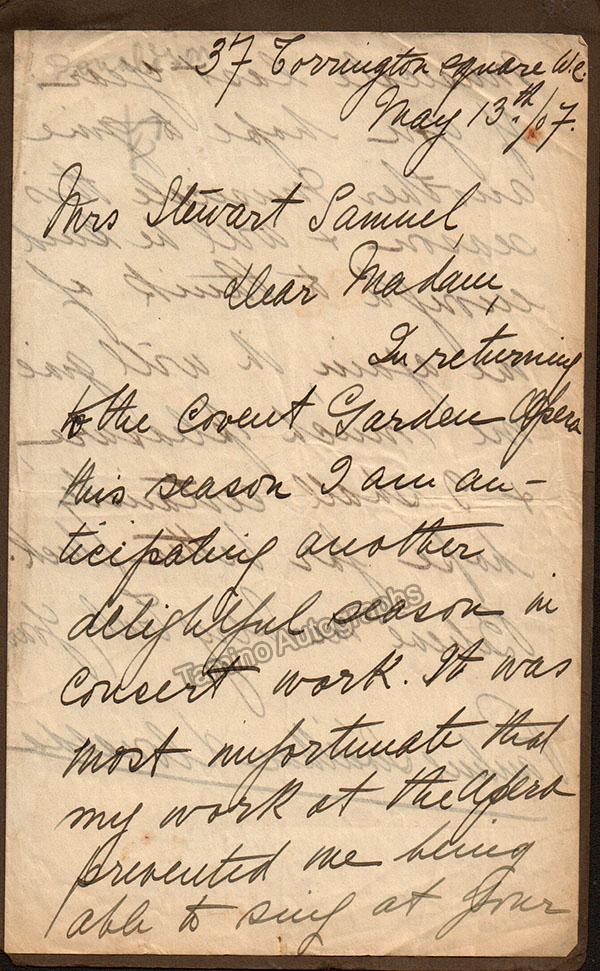 37 Torrington Square W.C.
May 13th/07.
Mrs Stewart Samuel,
Dear Madam,
In returning
to the Covent Garden Opera
this season I am an-
ticipating another
delightful season in
concert work. It was
most unfortunate that
my work at the Opera
prevented me being
able to sing at your
Tamino Autographs